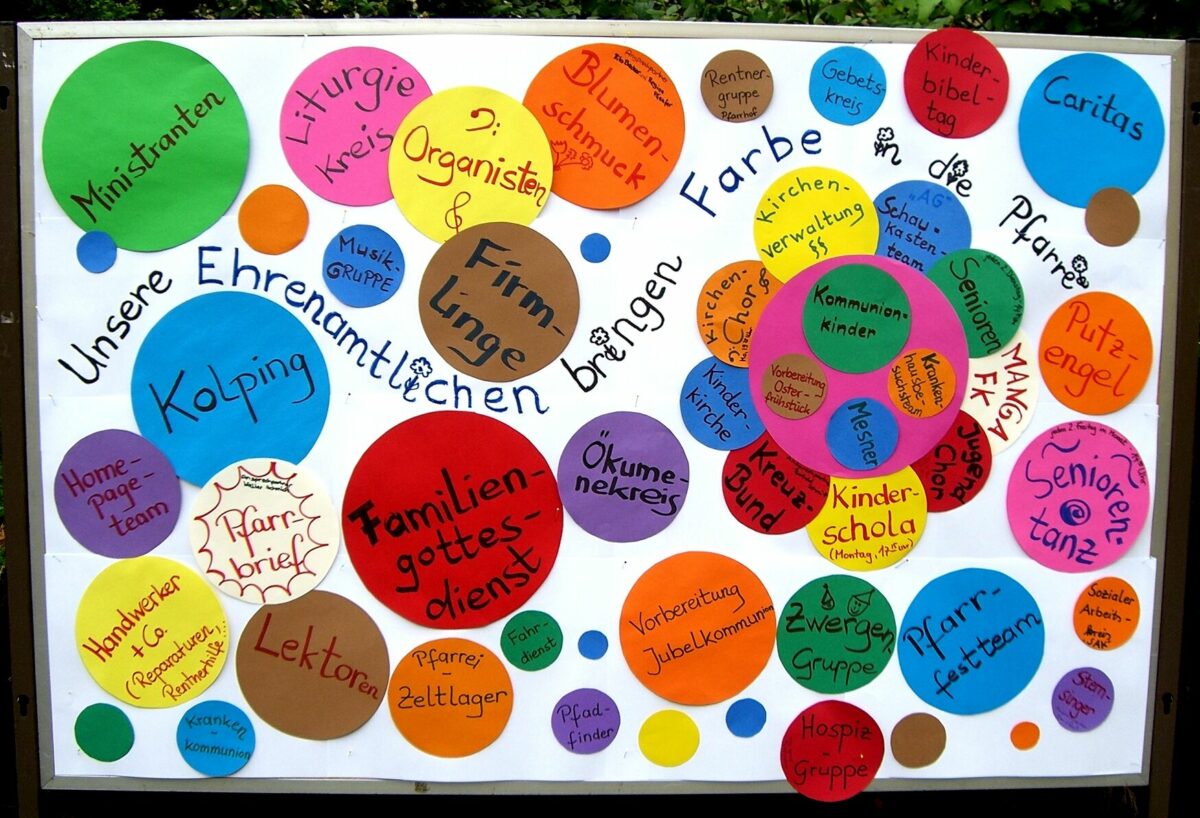 Unsere Ehrenamtlichen bringen Farbe in die Pfarrei
Ministranten
Liturgie
kreis
Organisten
Blumen-
schmuck
Rentner-
gruppe
Pfarrhof
Gebets-
kreis
Kinder-
bibel-
tag
Caritas
Musik-
GRUPPE
Firm-
linge
Kirchen-
verwaltung
§§
"AG"
Schau-
kasten-
team
Senioren
Kirchen-
Chor
Kommunion-
kinder
Vorbereitung
Oster-
frühstück
Kranken-
hausbe-
suchsteam
Mesner
Kinder-
kirche
MANGA
FK
Putz-
engel
Kolping
Home-
page-
team
Pfarr-
brief
Familien-
gottes-
dienst
Ökume-
nekreis
Kreuz-
Bund
Jugend
Chor
Kinder-
schola
(Montag, 17 15 Uhr)
jeden 2. Freitag im Monat
Senioren-
tanz
Handwerker
+ Co.
(Reparaturen,
Rentnerhilfe...
Lektoren
Pfarrei
-
Zeltlager
Fahr-
dienst
Vorbereitung
Jubelkommunion
Zwergen
Gruppe
Pfarr-
festteam
Sozialer
Arbeits-
kreis
SAK
Stern-
singer
Kranken-
kommunion
Pfad-
finder
Hospiz
-
Gruppe